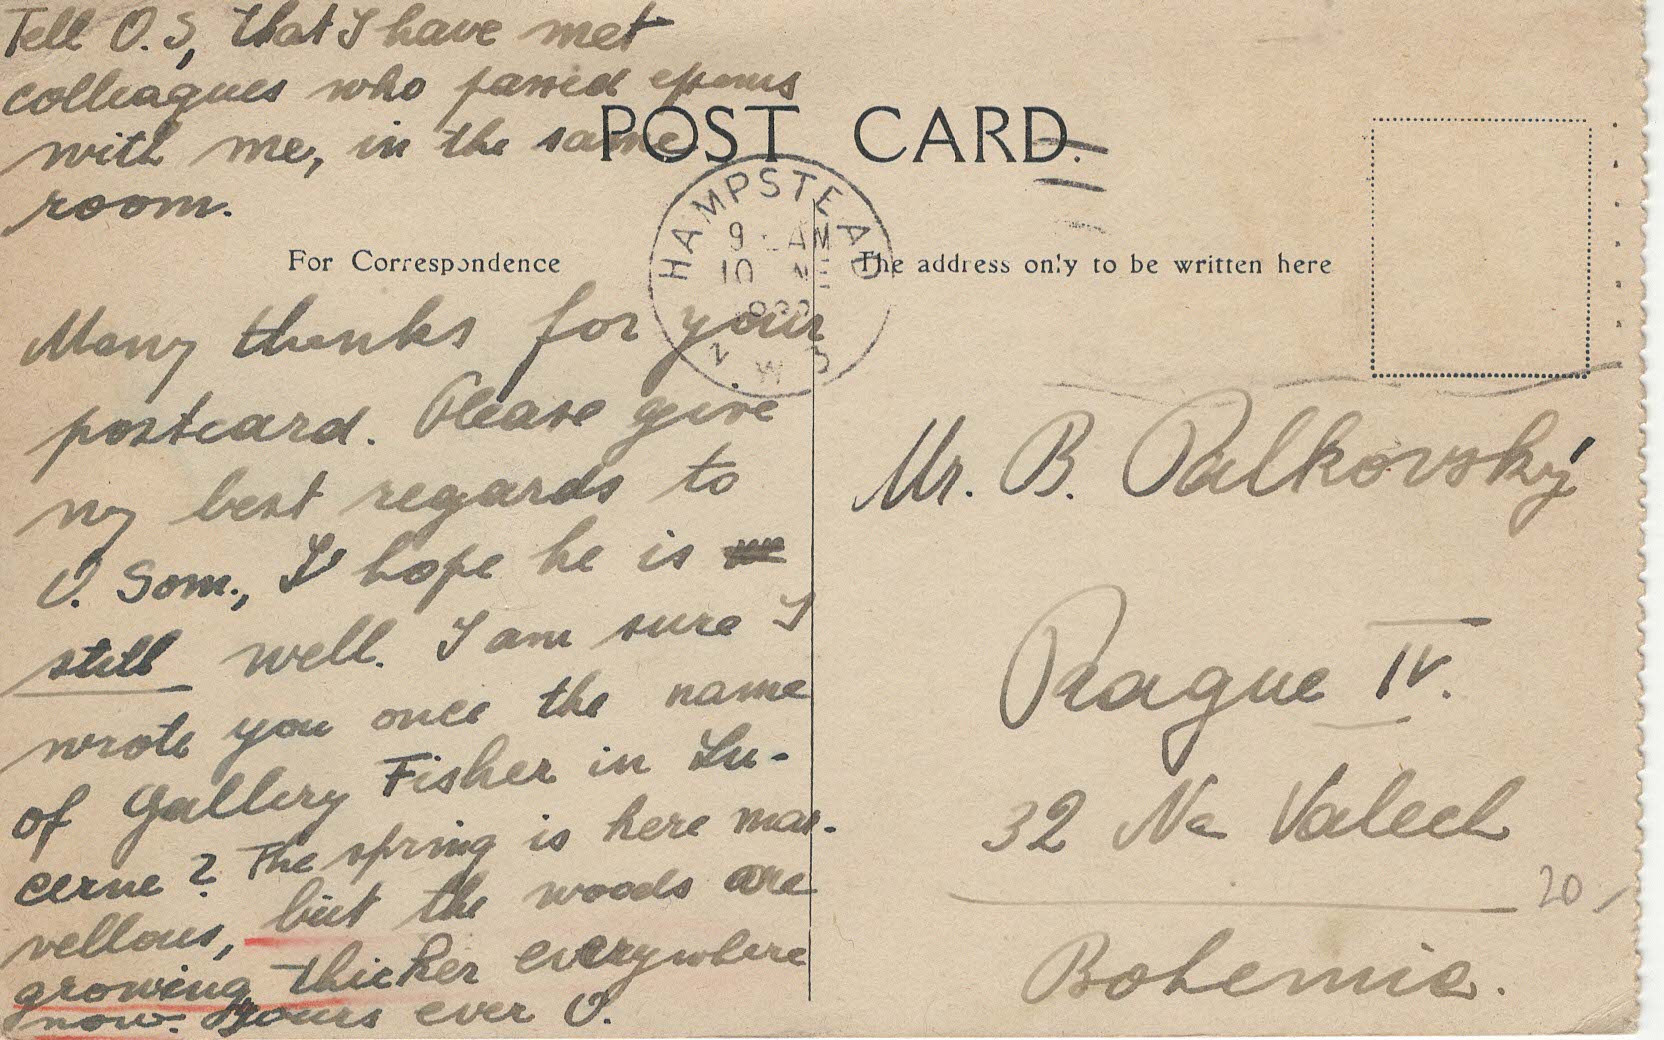 Tell O.S, that I have met
colleagues who passed exams
with me, in the same
room.
POST CARD.
HAMPSTEAD
9 AM
10
N.W.3
For Correspondence
The address only to be written here
Many thanks for your
postcard. Please give
my best regards to
O. Som., I hope he is
still well. I am sure I
wrote you once the name
of Gallery Fisher in Lu-
cerne? The spring is here mar-
vellous, but the woods are
growing thicker everywhere
now. Yours ever O.
Mr. B. Palkovský
Prague IV.
32 Na Valech
Bohemia.
20